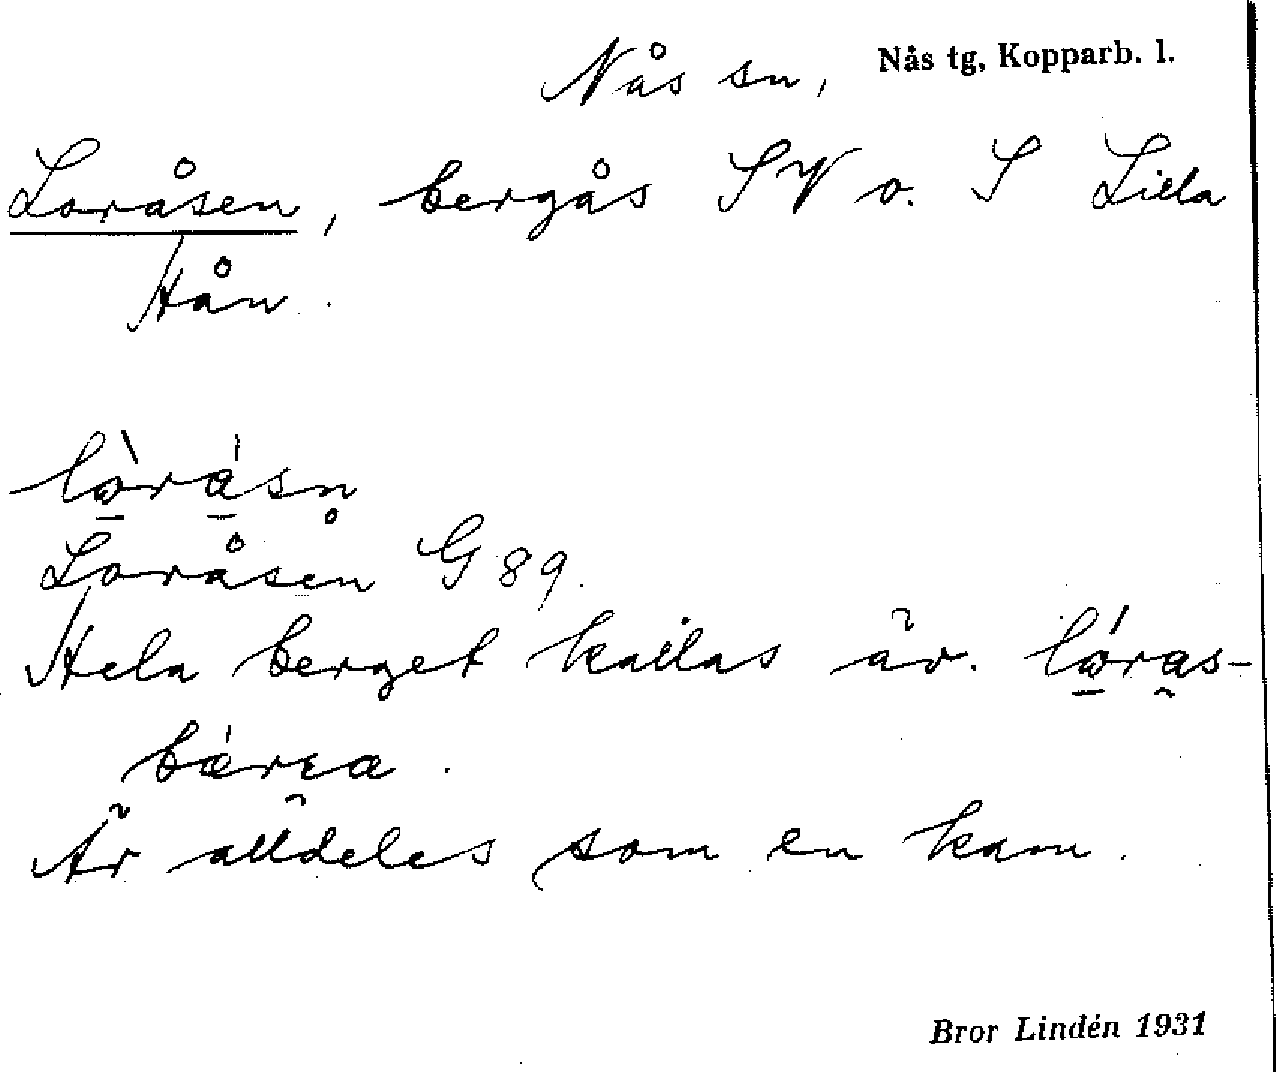 Nås sn, Nås tg, Kopparb. l.
Loråsen, bergås SV o. S Lilla
Hån.
lòrásn̥
Loråsen G 89.
Hela berget kallas äv. lóras-
bærɛa.
Är alldeles som en kam.
Bror Lindén 1931